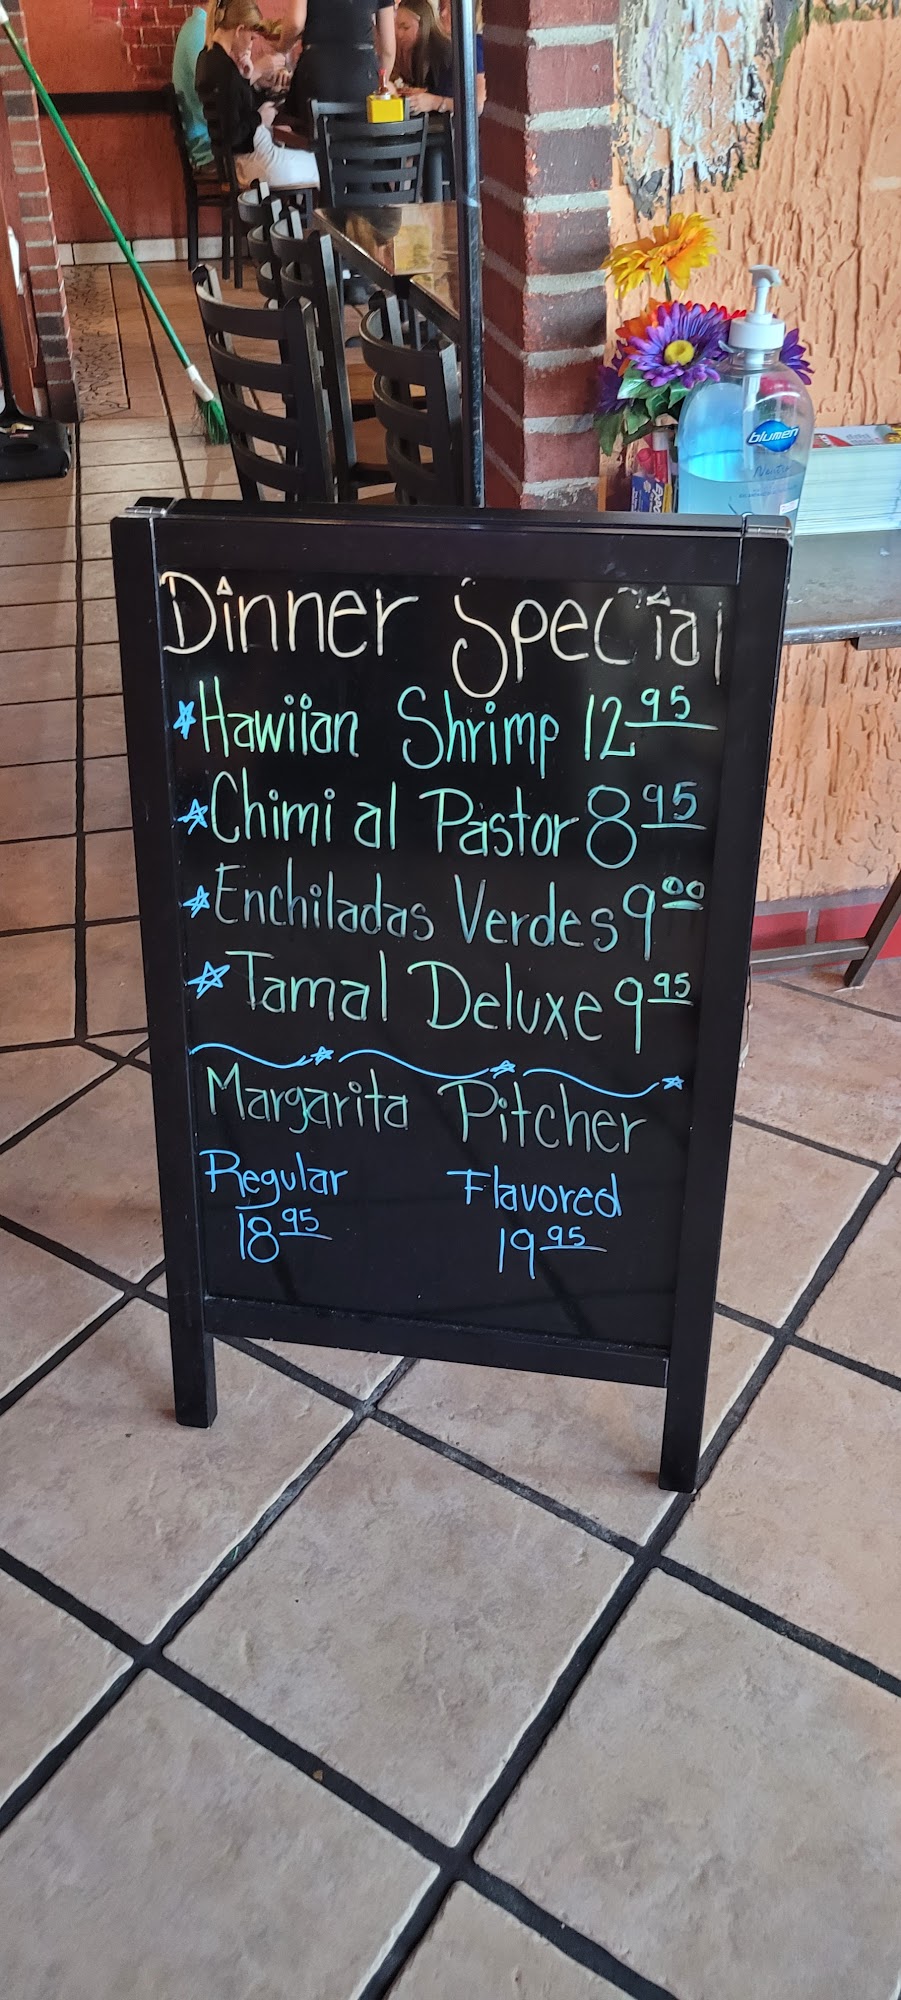 Dinner Special
Hawiian Shrimp 12 95
Chimi al Pastor 8 95
Enchiladas Verdes 9 00
Tamal Deluxe 9 95
Margarita Pitcher
Regular Flavored
18 95 19 95
blumen